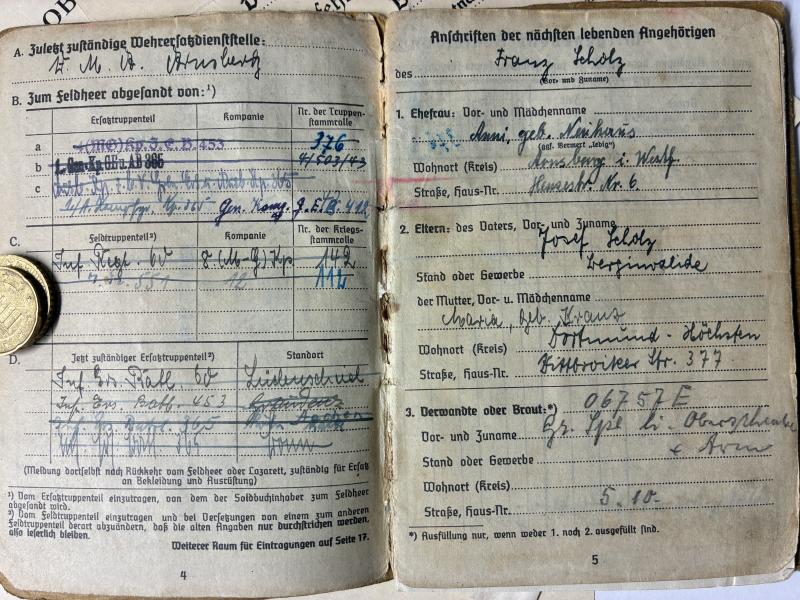 A. Zuletzt zuständige Wehrersatzdienststelle:
W. M. A. Arnsberg
B. Zum Feldheer abgesandt von:¹)
Ersatztruppenteil Kompanie Nr. der Truppenstammrolle
a 4(MG)Kp. J.E.B. 453 376
b 1. Gen.Kp. GEu.AB 365 4/503/43
c
Gen. Komp. G.E.B. 412
C. Feldtruppenteil²) Kompanie Nr. der Kriegsstammrolle
Inf. Regt. 60 8 (M-G) Kp 142
551 12 112
D. Jetzt zuständiger Ersatztruppenteil²) Standort
Inf. Ers. Batl. 60 Lüdenscheid
Inf. Ers. Batl. 453 Graudenz
365
(Meldung dortselbst nach Rückkehr vom Feldheer oder Lazarett, zuständig für Ersatz
an Bekleidung und Ausrüstung)
¹) Vom Ersatztruppenteil einzutragen, von dem der Soldbuchinhaber zum Feldheer
abgesandt wird.
²) Vom Feldtruppenteil einzutragen und bei Versetzungen von einem zum anderen
Feldtruppenteil derart abzuändern, daß die alten Angaben nur durchstrichen werden,
also leserlich bleiben.
Weiterer Raum für Eintragungen auf Seite 17.
4
Anschriften der nächsten lebenden Angehörigen
des Franz Scholz
(Vor- und Zuname)
1. Ehefrau: Vor- und Mädchenname
Anni, geb. Neuhaus
(ggf. Vermerk „ledig“)
Wohnort (Kreis) Arnsberg i. Westf.
Straße, Haus-Nr. Nr. 6
2. Eltern: des Vaters, Vor- und Zuname
Josef Scholz
Stand oder Gewerbe Berginvalide
der Mutter, Vor- u. Mädchenname
Maria, geb. Kranz
Wohnort (Kreis) Dortmund-Höchsten
Straße, Haus-Nr. Wittbräuker Str. 377
3. Verwandte oder Braut:*) 06757 E
Vor- und Zuname
Stand oder Gewerbe
Wohnort (Kreis)
Straße, Haus-Nr. 5.10.
*) Ausfüllung nur, wenn weder 1. noch 2. ausgefüllt sind.
5